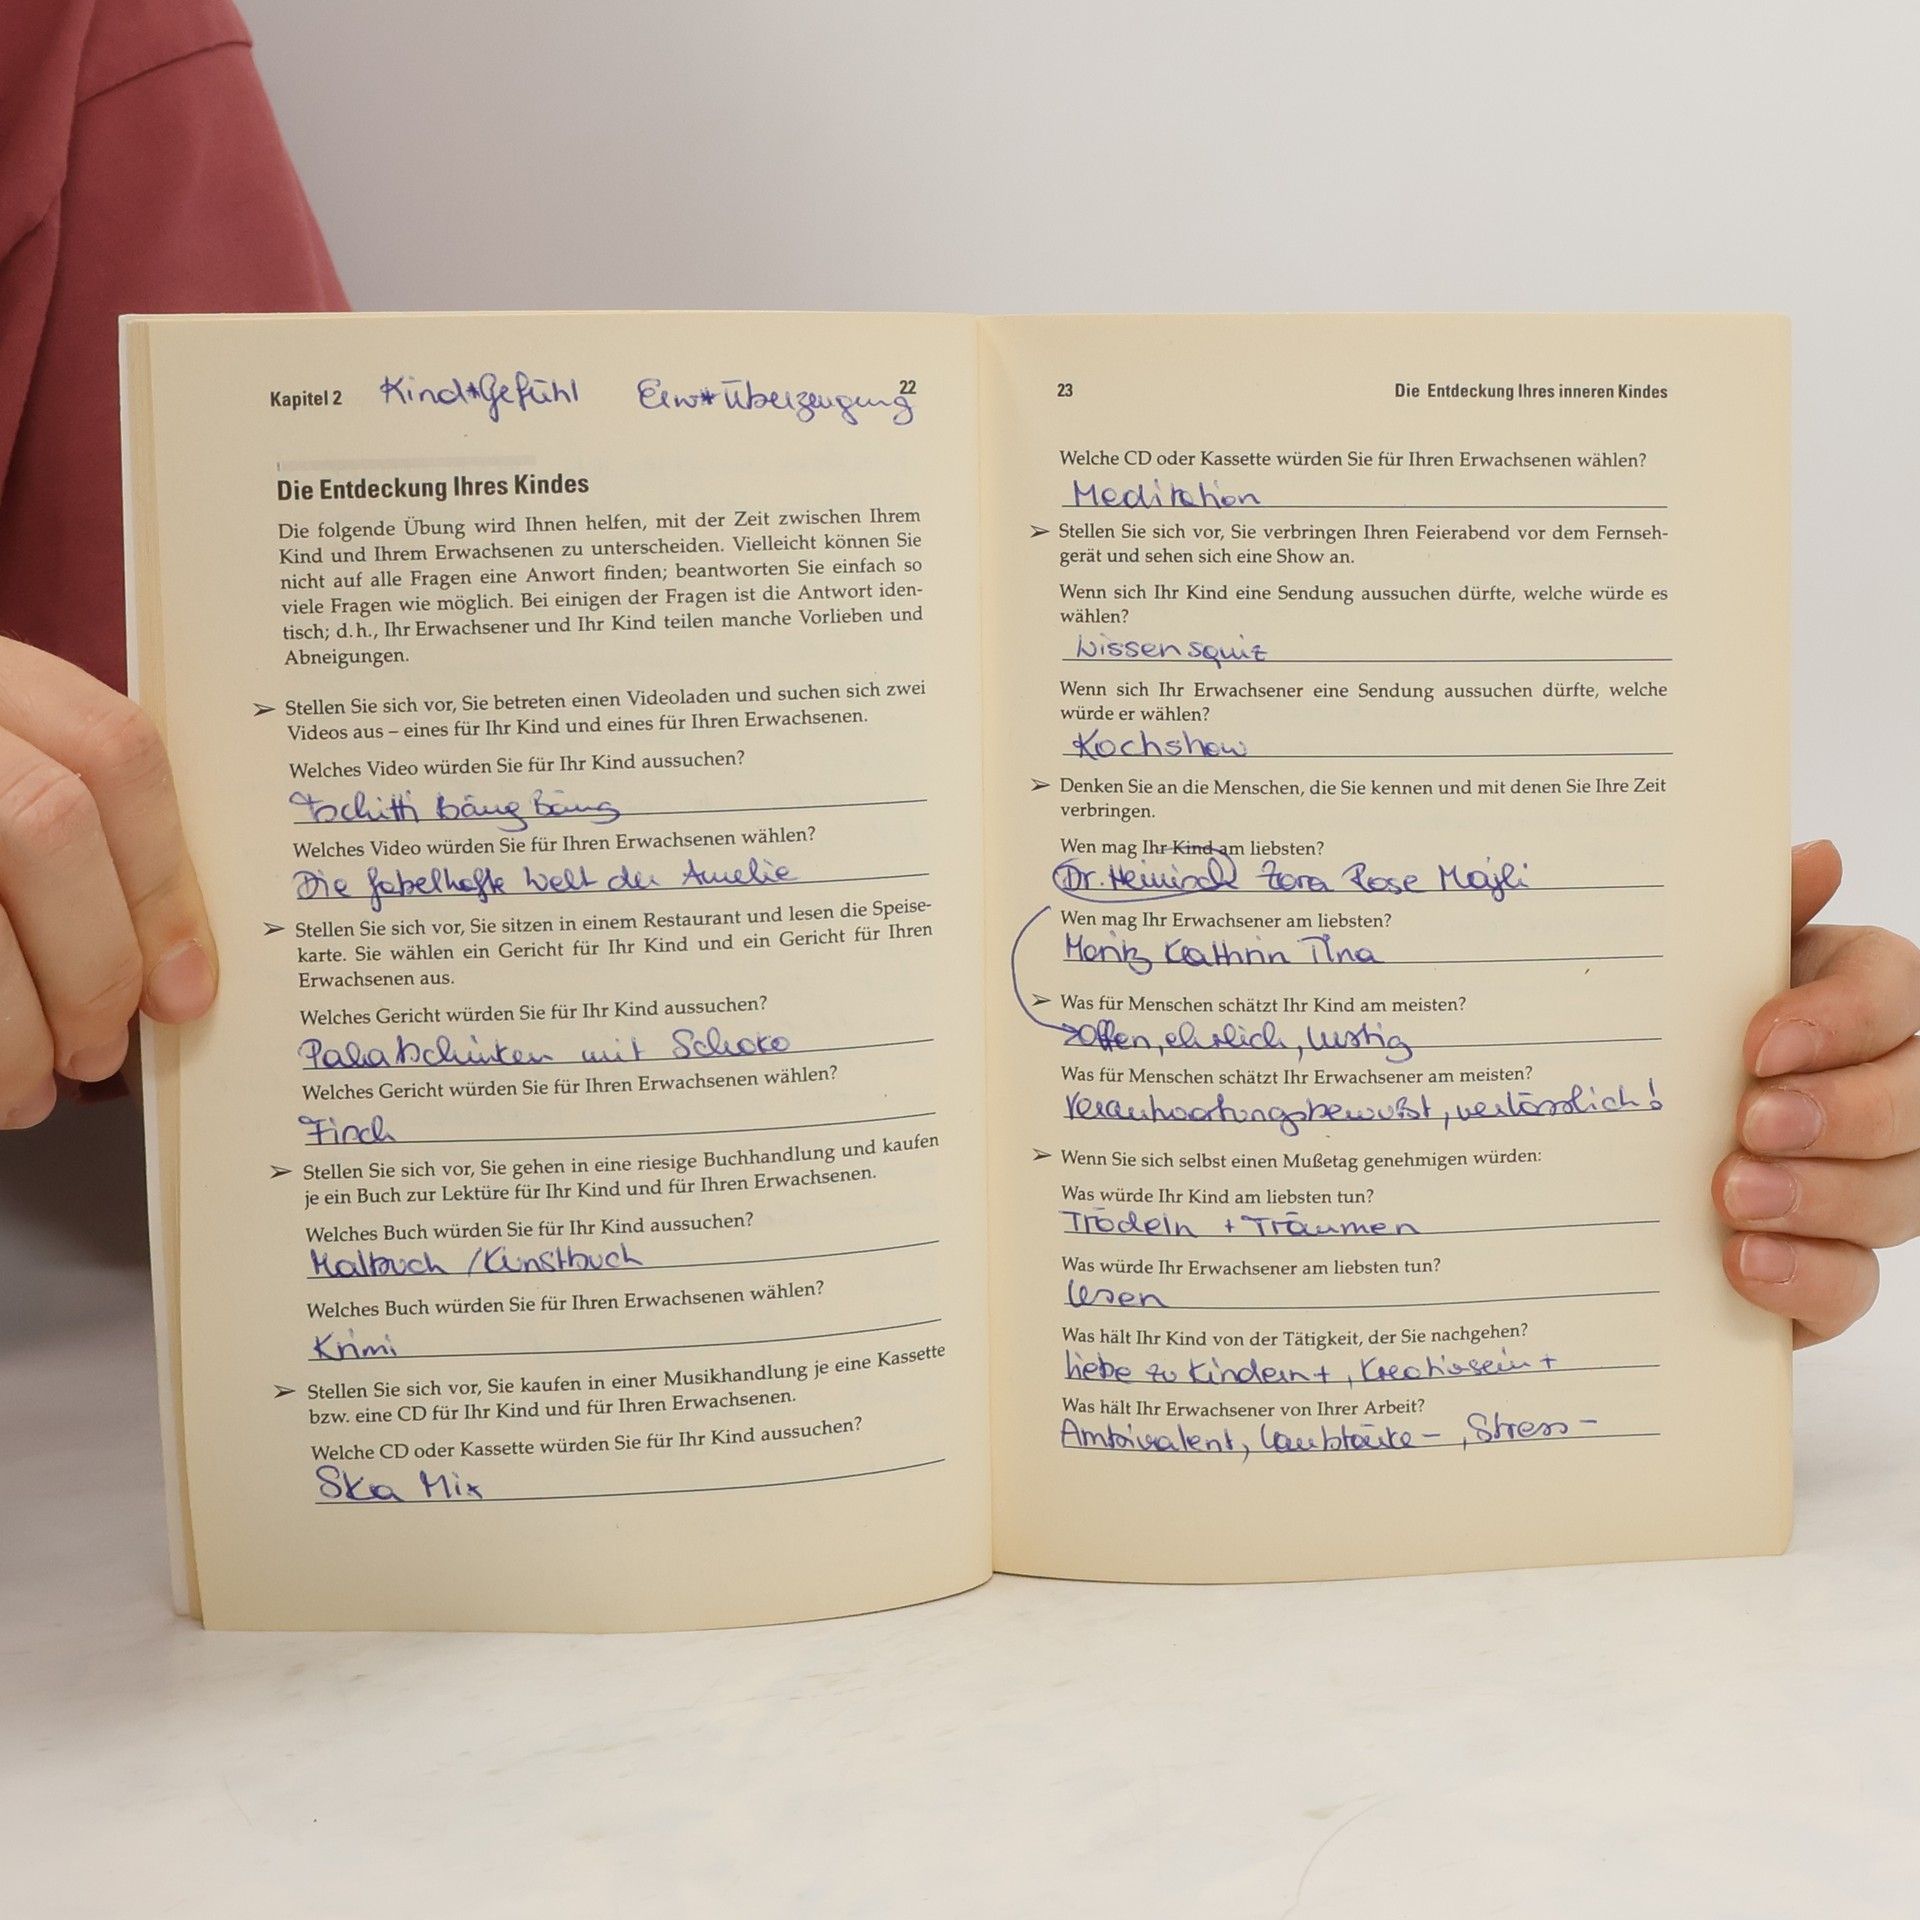 Kapitel 2 Kind*Gefühl Erw*Überzeugung 22
Die Entdeckung Ihres Kindes
Die folgende Übung wird Ihnen helfen, mit der Zeit zwischen Ihrem
Kind und Ihrem Erwachsenen zu unterscheiden. Vielleicht können Sie
nicht auf alle Fragen eine Anwort finden; beantworten Sie einfach so
viele Fragen wie möglich. Bei einigen der Fragen ist die Antwort iden-
tisch; d.h., Ihr Erwachsener und Ihr Kind teilen manche Vorlieben und
Abneigungen.
➢ Stellen Sie sich vor, Sie betreten einen Videoladen und suchen sich zwei
Videos aus – eines für Ihr Kind und eines für Ihren Erwachsenen.
Welches Video würden Sie für Ihr Kind aussuchen?
Tschitti Bäng Bäng
Welches Video würden Sie für Ihren Erwachsenen wählen?
Die fabelhafte Welt der Amelie
➢ Stellen Sie sich vor, Sie sitzen in einem Restaurant und lesen die Speise-
karte. Sie wählen ein Gericht für Ihr Kind und ein Gericht für Ihren
Erwachsenen aus.
Welches Gericht würden Sie für Ihr Kind aussuchen?
Palatschinken mit Schoko
Welches Gericht würden Sie für Ihren Erwachsenen wählen?
Fisch
➢ Stellen Sie sich vor, Sie gehen in eine riesige Buchhandlung und kaufen
je ein Buch zur Lektüre für Ihr Kind und für Ihren Erwachsenen.
Welches Buch würden Sie für Ihr Kind aussuchen?
Malbuch / Kunstbuch
Welches Buch würden Sie für Ihren Erwachsenen wählen?
Krimi
➢ Stellen Sie sich vor, Sie kaufen in einer Musikhandlung je eine Kassette
bzw. eine CD für Ihr Kind und für Ihren Erwachsenen.
Welche CD oder Kassette würden Sie für Ihr Kind aussuchen?
Ska Mix
23 Die Entdeckung Ihres inneren Kindes
Welche CD oder Kassette würden Sie für Ihren Erwachsenen wählen?
Meditation
➢ Stellen Sie sich vor, Sie verbringen Ihren Feierabend vor dem Fernseh-
gerät und sehen sich eine Show an.
Wenn sich Ihr Kind eine Sendung aussuchen dürfte, welche würde es
wählen?
Wissensquiz
Wenn sich Ihr Erwachsener eine Sendung aussuchen dürfte, welche
würde er wählen?
Kochshow
➢ Denken Sie an die Menschen, die Sie kennen und mit denen Sie Ihre Zeit
verbringen.
Wen mag Ihr Kind am liebsten?
Dr. Heinisch Zora Rose
Wen mag Ihr Erwachsener am liebsten?
Moritz Kathrin Tina
➢ Was für Menschen schätzt Ihr Kind am meisten?
Offen, ehrlich, lustig
Was für Menschen schätzt Ihr Erwachsener am meisten?
Verantwortungsbewußt, verlässlich!
➢ Wenn Sie sich selbst einen Mußetag genehmigen würden:
Was würde Ihr Kind am liebsten tun?
Trödeln + Träumen
Was würde Ihr Erwachsener am liebsten tun?
lesen
Was hält Ihr Kind von der Tätigkeit, der Sie nachgehen?
liebe zu Kindern +, Kreativsein +
Was hält Ihr Erwachsener von Ihrer Arbeit?
Ambivalent, Lautstärke –, Stress –